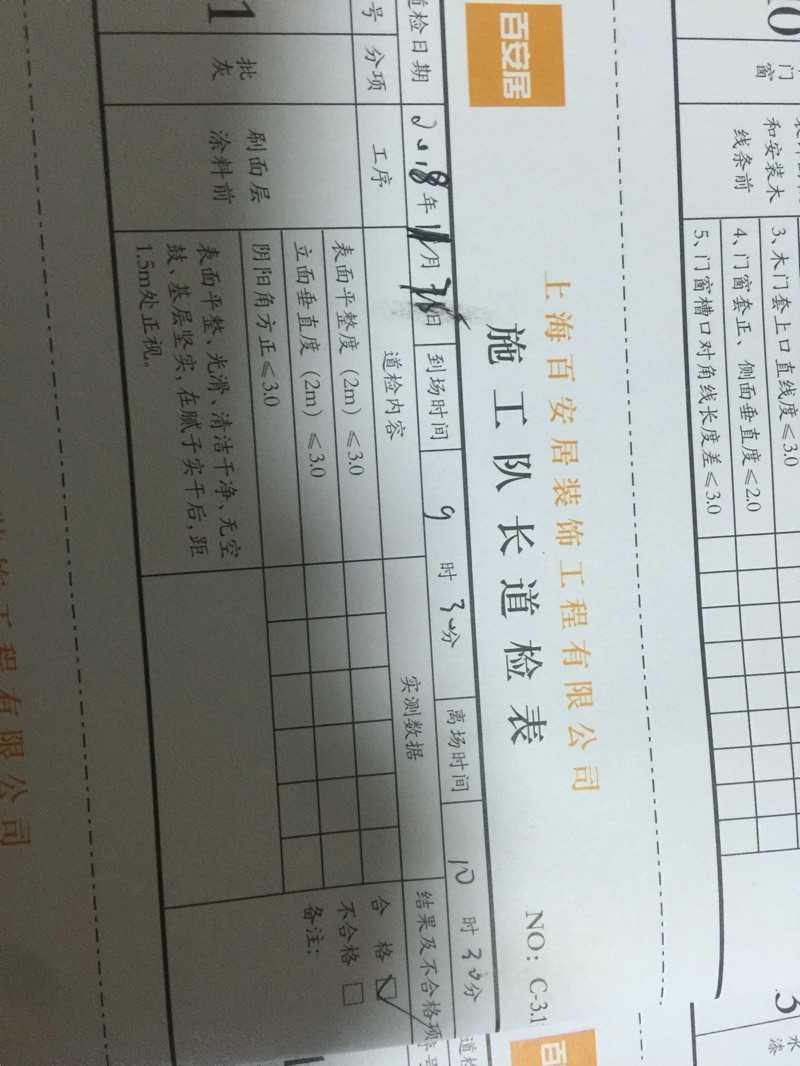 门窗
和安装木
线条前
3、木门套上口直线度≤3.0
4、门窗套正、侧面垂直度≤2.0
5、门窗槽口对角线长度差≤3.0
百安居
上海百安居装饰工程有限公司
施工队长道检表
NO: C-3.1
道检日期 2018年11月 日 到场时间 9时30分 离场时间 10时30分
号 分项 工序 道检内容 实测数据 结果及不合格项
1 批灰 刷面层涂料前
表面平整度（2m）≤3.0
立面垂直度（2m）≤3.0
阴阳角方正≤3.0
表面平整、光滑、清洁干净、无空
鼓、基层坚实，在腻子实干后，距
1.5m处正视。
合格 ☑
不合格 □
备注：
水漆
道检
百
装饰工程有限公司